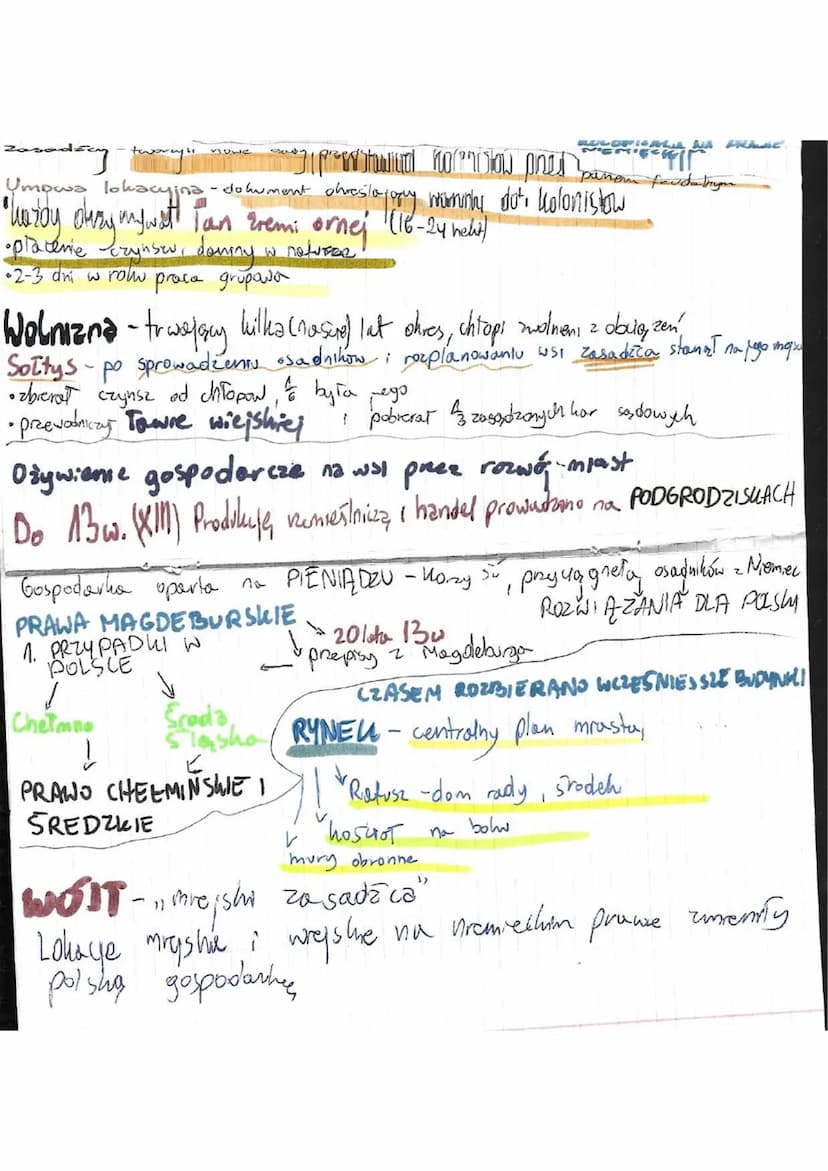 KOLONIZACJA NA PRAWIE NIEMIECKIM
zasadźcy - tworzyli nowe osady, przedstawiciel kolonistów przed panem feudalnym
Umowa lokacyjna - dokument określający warunki dot. kolonistów
•każdy otrzymywał Łan ziemi ornej (16-24 hekt)
•płacenie czynszu, daniny w naturze
•2-3 dni w roku praca grupowa
Wolnizna - trwający kilka(naście) lat okres, chłopi zwolnieni z obciążeń
Sołtys - po sprowadzeniu osadników i rozplanowaniu wsi zasadźca stanął na jego miejscu
•zbierał czynsz od chłopów, 1/6 była jego
•przewodniczył Ławie wiejskiej i pobierał 1/3 zasądzonych kar sądowych
Ożywienie gospodarcze na wsi przez rozwój miast
Do 13w. (XIII) Produkcję rzemieślniczą i handel prowadzono na PODGRODZISKACH
Gospodarka oparta na PIENIĄDZU - korzyść, przyciągnęła osadników z Niemiec
ROZWIĄZANIA DLA POLSKI
PRAWA MAGDEBURSKIE
20 lata 13w
1. PRZYPADKI W POLSCE
przepisy z Magdeburga
CZASEM ROZBIERANO WCZEŚNIEJSZE BUDYNKI
Chełmno
Środa Śląska
RYNEK - centralny plan miasta,
Ratusz - dom rady, środek
PRAWO CHEŁMIŃSKIE I
ŚREDZKIE
kościół na boku
mury obronne
WÓJT - „miejski zasadźca"
Lokacje miejskie i wiejskie na niemieckim prawie zmieniły
polską gospodarkę